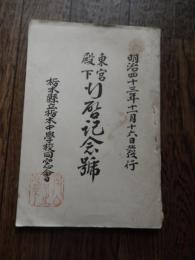 明治四十三年十二月十六日發行
東宮殿下行啓記念號
栃木縣立栃木中學校同窓會